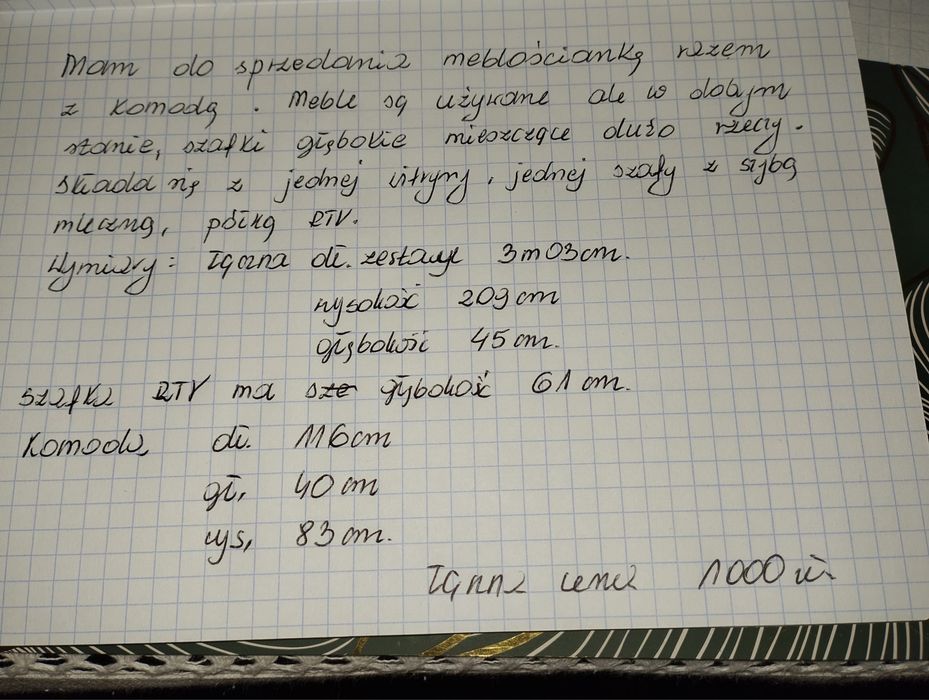 Mam do sprzedania meblościankę razem
z komodą. Meble są używane ale w dobrym
stanie, szafki głębokie mieszczące dużo rzeczy.
Składa się z jednej witryny, jednej szafy z szybą
mleczną, półką RTV.
Wymiary: Łączna dł. zestawu 3m03cm.
wysokość 209cm
głębokość 45cm.
Szafka RTV ma głębokość 61cm.
Komoda dł. 116cm
gł. 40cm
wys, 83cm.
Łączna cena 1000 zł.